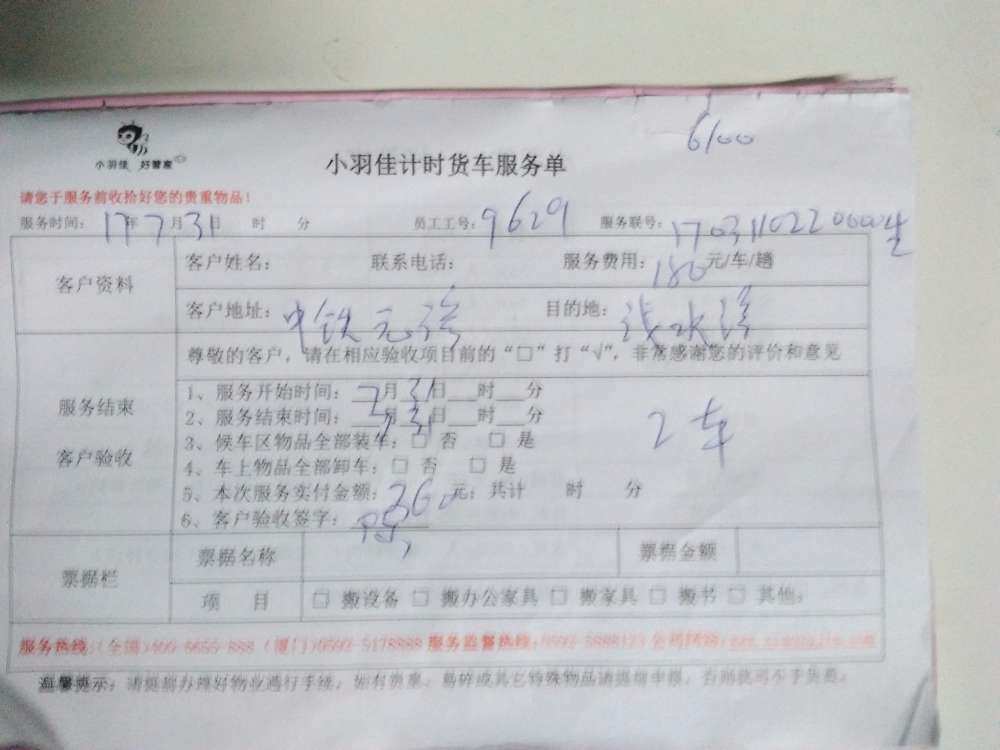 6100
小羽佳 好管家
小羽佳计时货车服务单
请您于服务前收拾好您的贵重物品！
服务时间： 17年7月31日 时 分 员工工号：9629 服务联号：
客户资料
客户姓名： 联系电话： 服务费用：180元/车/趟
客户地址：中铁元湾 目的地：浅水湾
尊敬的客户，请在相应验收项目前的“□”打“√”，非常感谢您的评价和意见
服务结束
客户验收
1、服务开始时间：7月31日___时___分
2、服务结束时间：7月31日___时___分
3、候车区物品全部装车：□ 否 □ 是
4、车上物品全部卸车：□ 否 □ 是
5、本次服务实付金额：360元；共计 时 分
6、客户验收签字：陈
2车
票据栏
票据名称 票据金额
项 目 □ 搬设备 □ 搬办公家具 □ 搬家具 □ 搬书 □ 其他：
服务热线：（全国）400-6655-888（厦门）0592-5178888 服务监督热线：0592-5888123 公司网络：
温馨提示：请提前办理好物业通行手续，如有贵重、易碎或其它特殊物品请提前申报，否则我司不予负责。